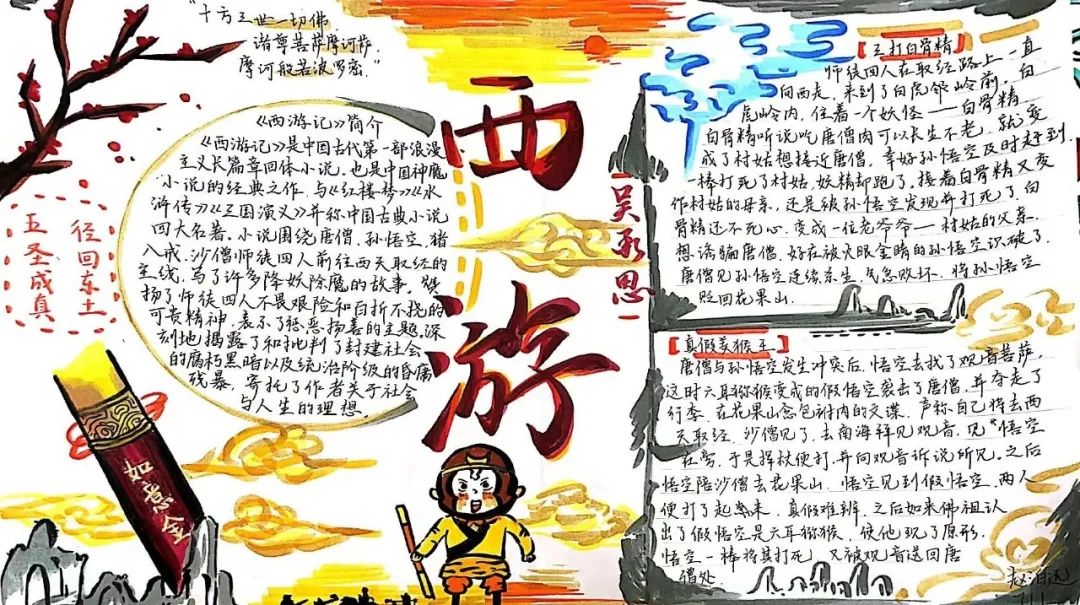 "十方三世一切佛
诸尊菩萨摩诃萨
摩诃般若波罗密."
《西游记》简介
《西游记》是中国古代第一部浪漫
主义长篇章回体小说,也是中国神魔
小说的经典之作.与《红楼梦》《水
浒传》《三国演义》并称中国古典小说
四大名著.小说围绕唐僧.孙悟空.猪
八戒.沙僧师徒四人前往西天取经的
主线,写了许多降妖除魔的故事.
扬了师徒四人不畏艰险和百折不挠的
可贵精神,表示了惩恶扬善的主题,深
刻地揭露了和批判了封建社会
的腐朽黑暗以及统治阶级的昏庸
残暴.寄托了作者关于社会
与人生的理想.
径回东土
五圣成真
如意金
西游
吴承恩
【三打白骨精】
师徒四人在取经路上一直
向西走,来到了白虎邻岭前.白
虎岭内,住着一个妖怪——白骨精
白骨精听说吃唐僧肉可以长生不老,就变
成了村姑想接近唐僧.幸好孙悟空及时赶到
一棒打死了村姑,妖精却跑了.接着白骨精又变
作村姑的母亲,还是被孙悟空发现并打死了.白
骨精还不死心,变成一位老爷爷—村姑的父亲.
想诱骗唐僧.好在被火眼金睛的孙悟空识破了.
唐僧见孙悟空连续杀生,气急败坏.将孙悟空
贬回花果山.
【真假美猴王】
唐僧与孙悟空发生冲突后,悟空去找了观音菩萨,
这时六耳猕猴变成的假悟空袭击了唐僧,并夺走了
行李.在花果山念包袱内的文谍.声称自己将去西
天取经.沙僧见了,去南海拜见观音,见"悟空
在旁,于是挥杖便打,并向观音诉说所见.之后
悟空陪沙僧去花果山.悟空见到假悟空,两人
便打了起来.真假难辨.之后如来佛祖认
出了假悟空是六耳猕猴,使他现了原形.
悟空一棒将其打死,又被观音送回唐
僧处.